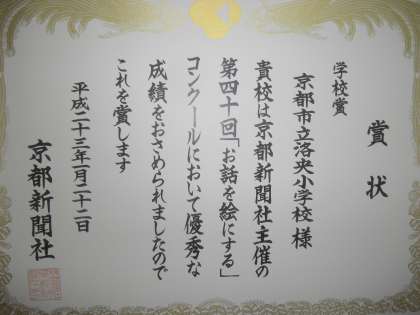 賞状
学校賞
京都市立洛央小学校 様
貴校は京都新聞社主催の
第四十回「お話を絵にする」
コンクールにおいて優秀な
成績をおさめられましたので
これを賞します
平成二十三年一月二十二日
京都新聞社